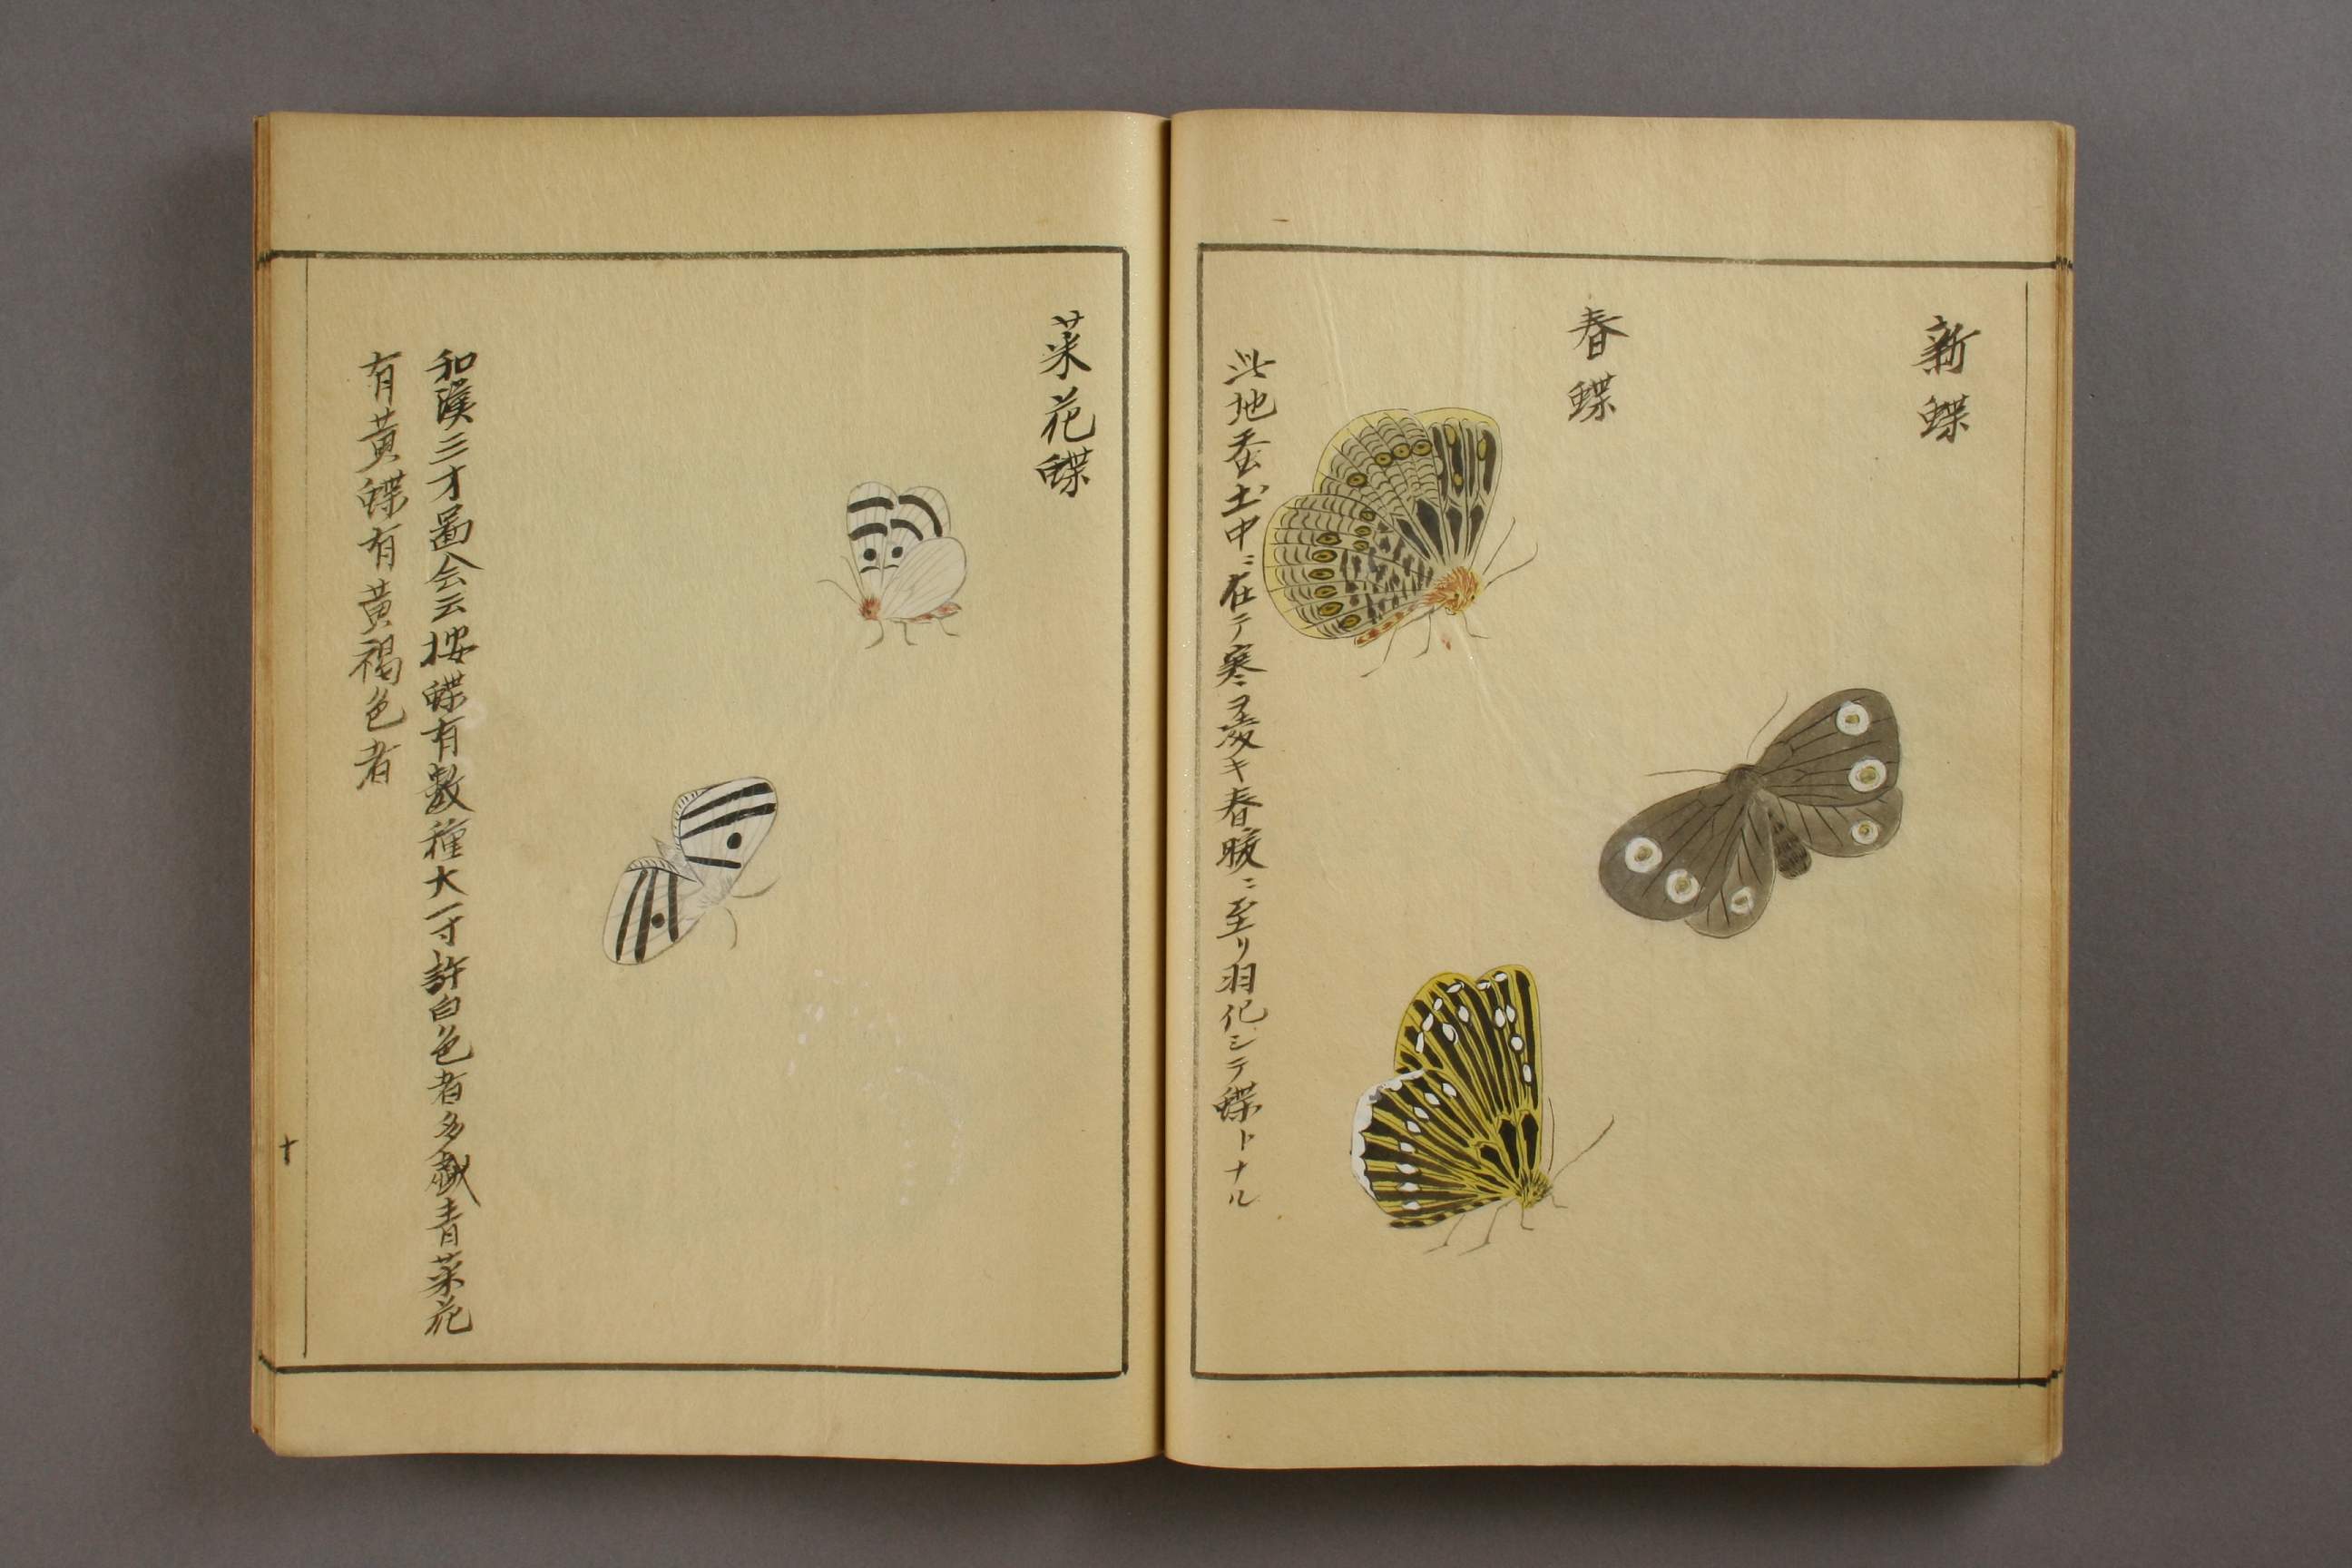 新蝶
春蝶
此地蚕土中ニ在テ寒ヲ凌キ春暖ニ至リ羽化シテ蝶トナル
菜花蝶
和漢三才圖会云按蝶有數種大一寸許白色者多戯青菜花
有黃蝶有黃褐色者
十